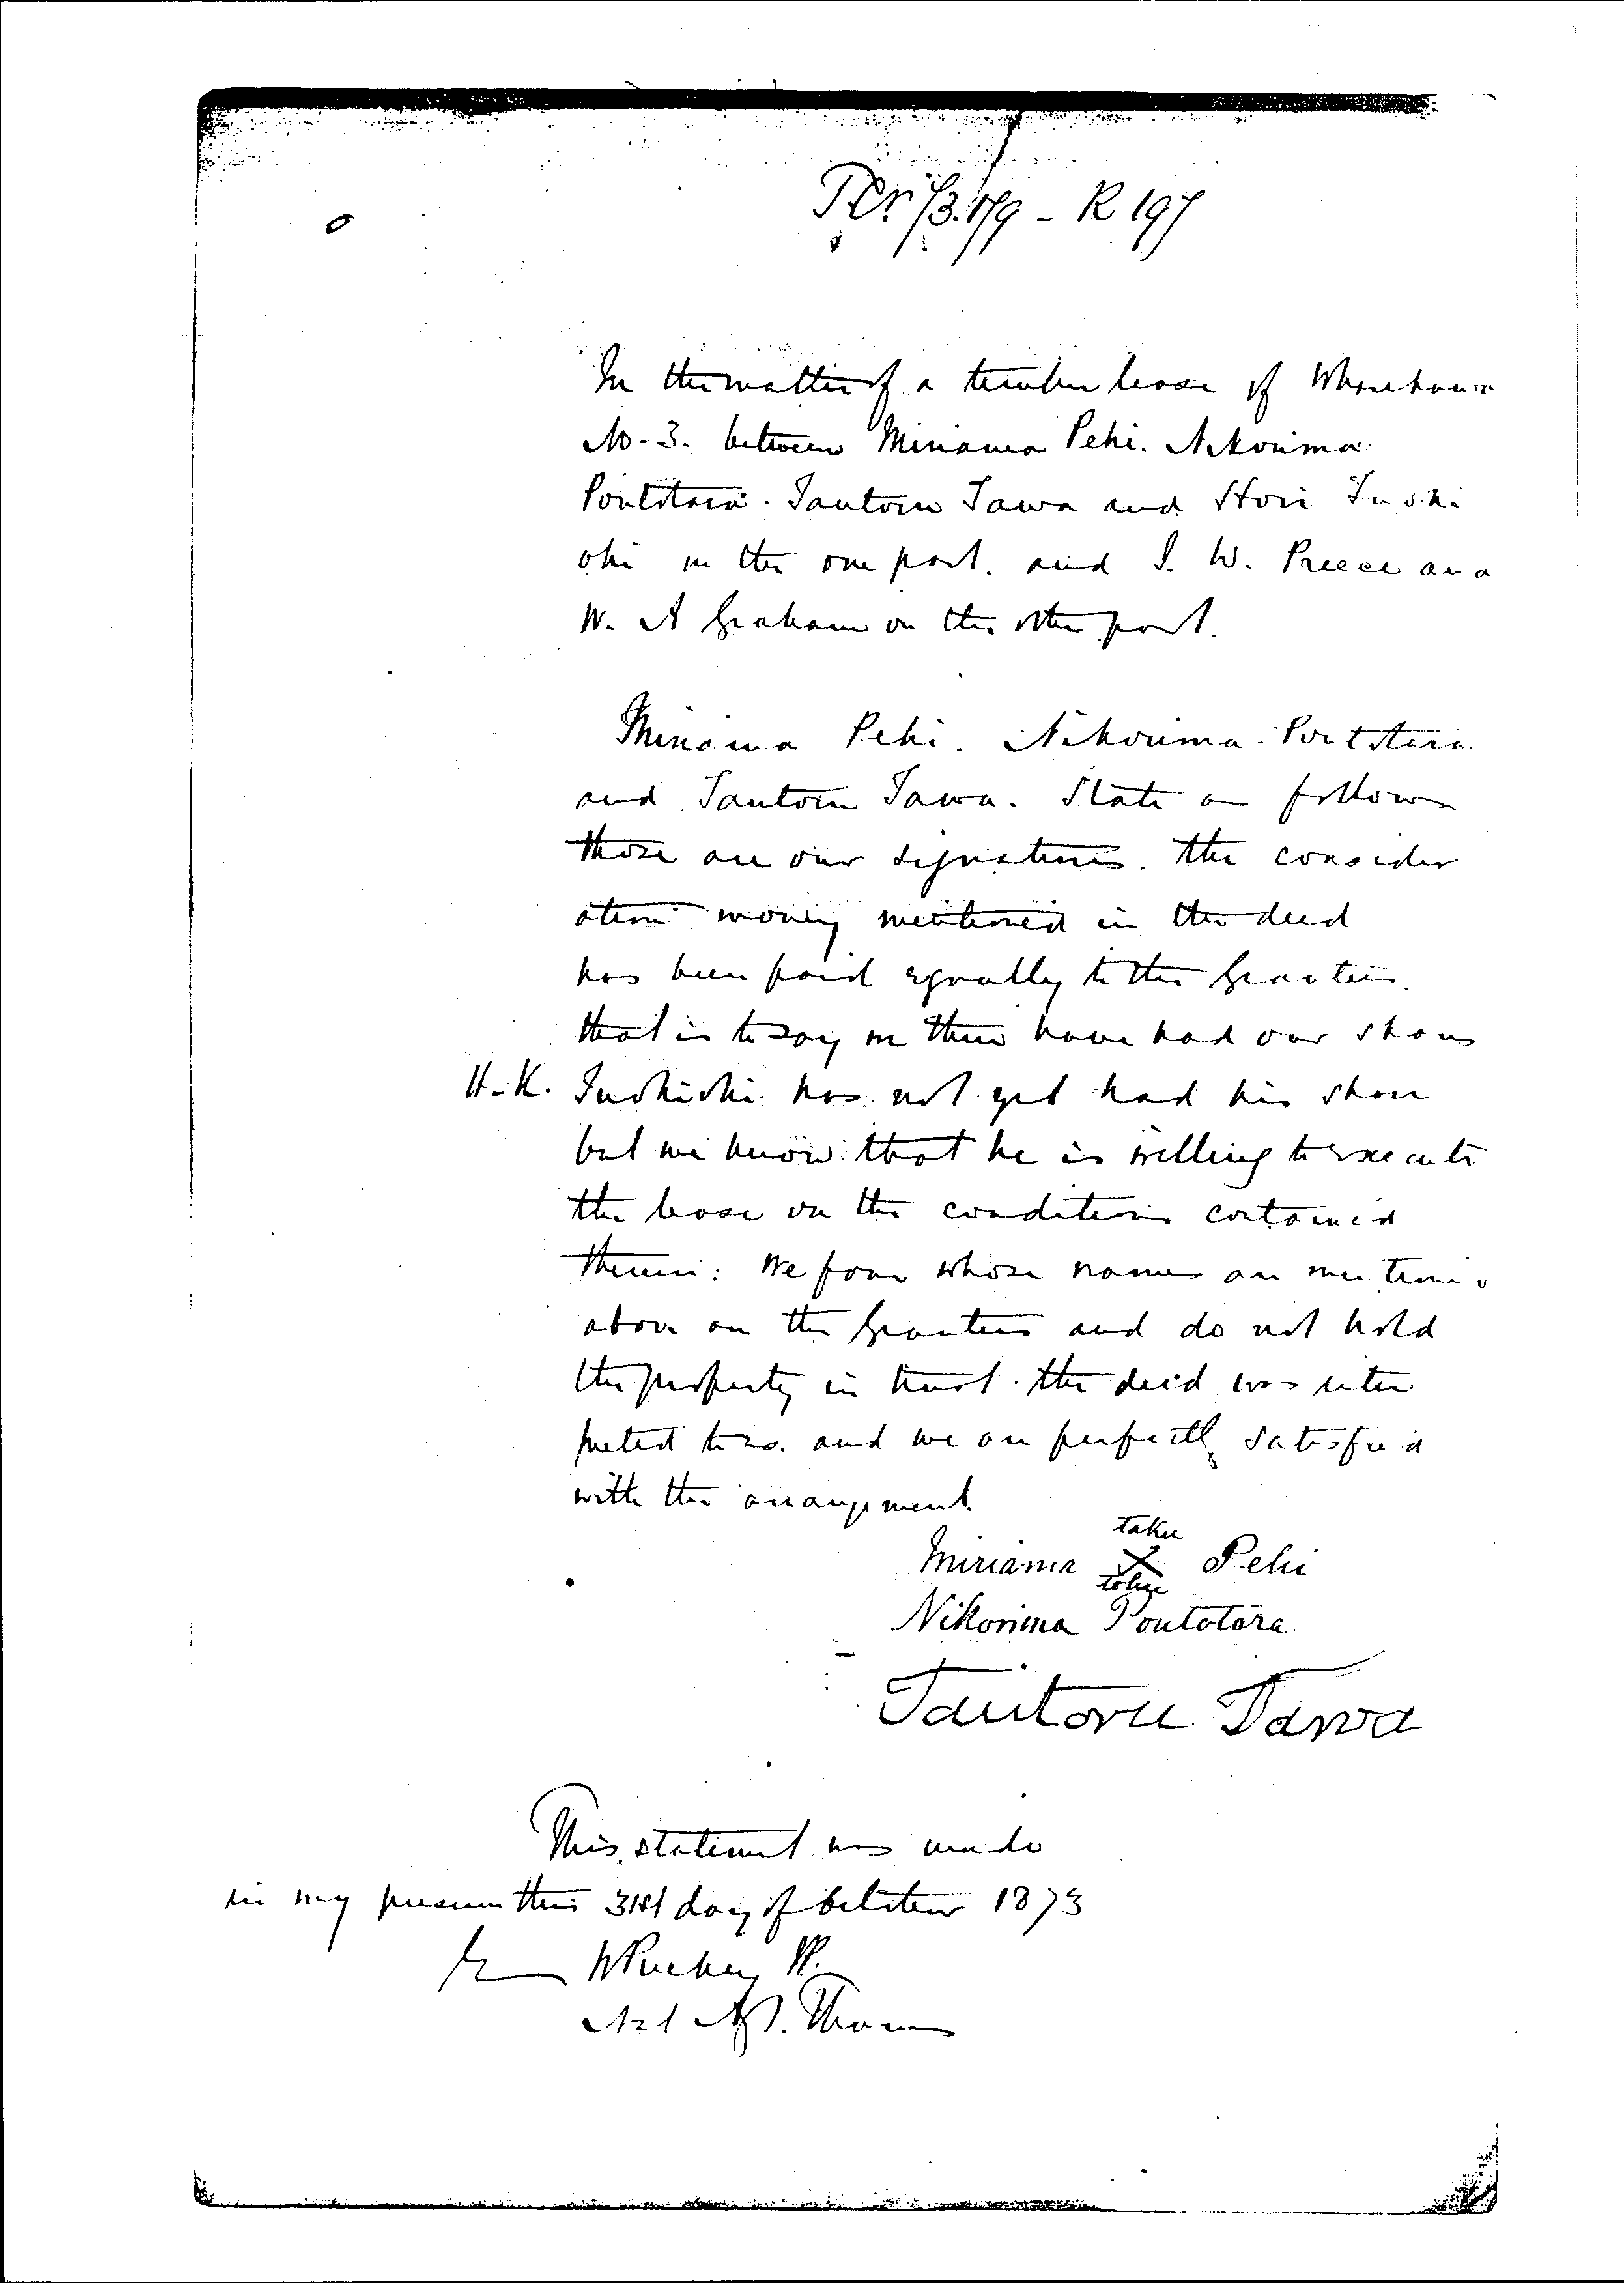 TCr 73.1/9 - R 197
In the matter of a timber lease of Wharekawa
No. 3. between Miriama Pehi. Nikorima
Poutotara. Tautoru Tawa and Hori Tuoki
oki on the one part. and J. W. Preece and
W. A Graham on the other part.
Miriama Pehi. Nikorima Poutotara
and Tautoru Tawa. State as follows
those are our signatures. The consider
ation money mentioned in the deed
has been paid equally to the Grantees.
that is to say we three have had our shares
H. K. has not yet had his share
but we know that he is willing to execute
the lease on the conditions contained
therein: We four whose names are mentioned
above are the Grantees and do not hold
the property in trust. the deed was inter
preted to us. and we are perfectly satisfied
with the arrangement.
Miriama X Pehi
Nikorima Poutotara
Tautoru Tawa
This statement was made
in my presence this 31st day of October 1873
W Puckey